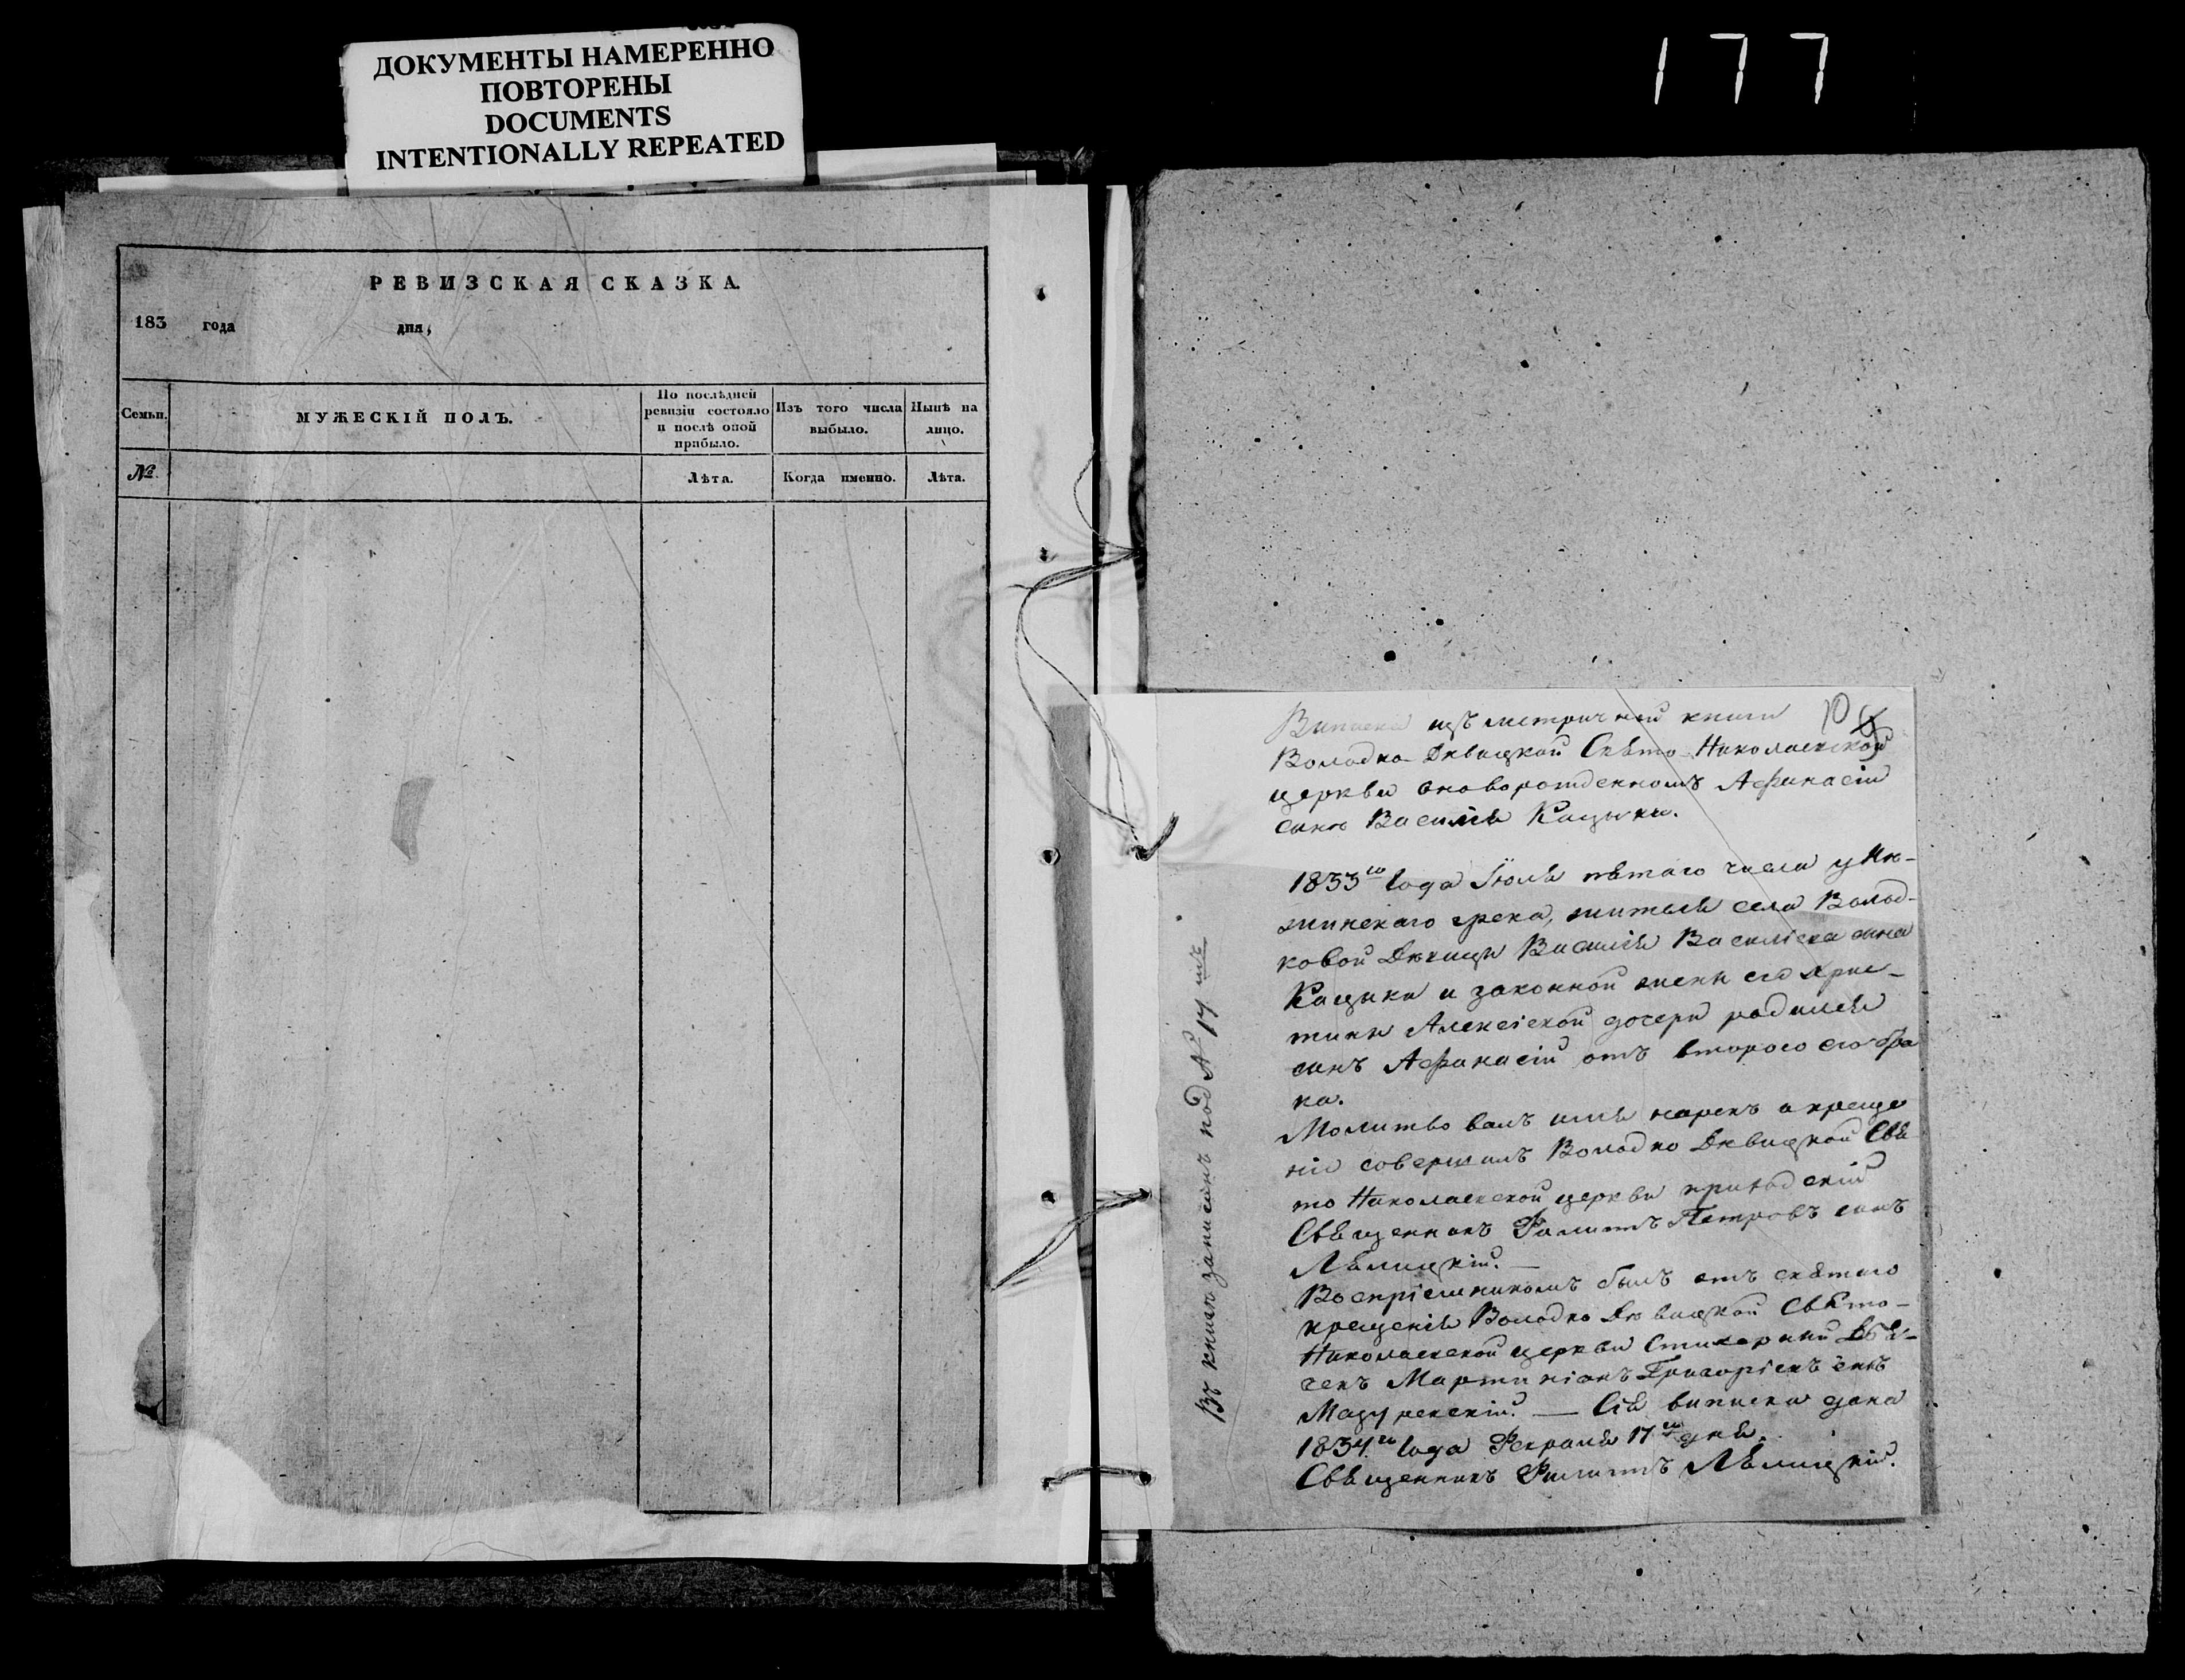 ДОКУМЕНТЫ НАМЕРЕННО
ПОВТОРЕНЫ
DOCUMENTS
INTENTIONALLY REPEATED
177
РЕВИЗСКАЯ СКАЗКА.
183 года дня,
Семьи.
МУЖЕСКІЙ ПОЛЪ.
По послѣдней
ревизіи состояло
и послѣ оной
прибыло.
Изъ того числа
выбыло.
Нынѣ на
лицо.
№
Лѣта.
Когда именно.
Лѣта.
10
Виписка изъ метричной книги
Володко-Дѣвицкой Свѣто-Николаевской
церкви оноворожденномъ Афанасіи
синѣ Василія Кацики.
1833го года Іюля пятаго числа у Нѣ-
жинскаго грека, жителя села Волод-
ковой Дѣвицы Василія Василіева сина
Кацики и законной жени его Хрис-
тини Алексіевой дочери родился
синъ Афанасій отъ второго его бра
ка.
Молитвовалъ имя нарекъ и креще
ніе совершилъ Володко Дѣвицкой Свя
то Николаевской церкви приходскій
Священникъ Филиппъ Петровъ синъ
Лѣницкій.
Воспріемникомъ былъ отъ святаго
крещенія Володко Дѣвицкой Свято-
Николаевской церкви Стихарний Дья-
чекъ Мартиніанъ Григоріевъ синъ
Мазуревскій. — Сія виписка дана
1834го года Февраля 17го дня.
Священникъ Филиппъ Лѣницкій.
Въ книгѣ записанъ под № 17 мъ